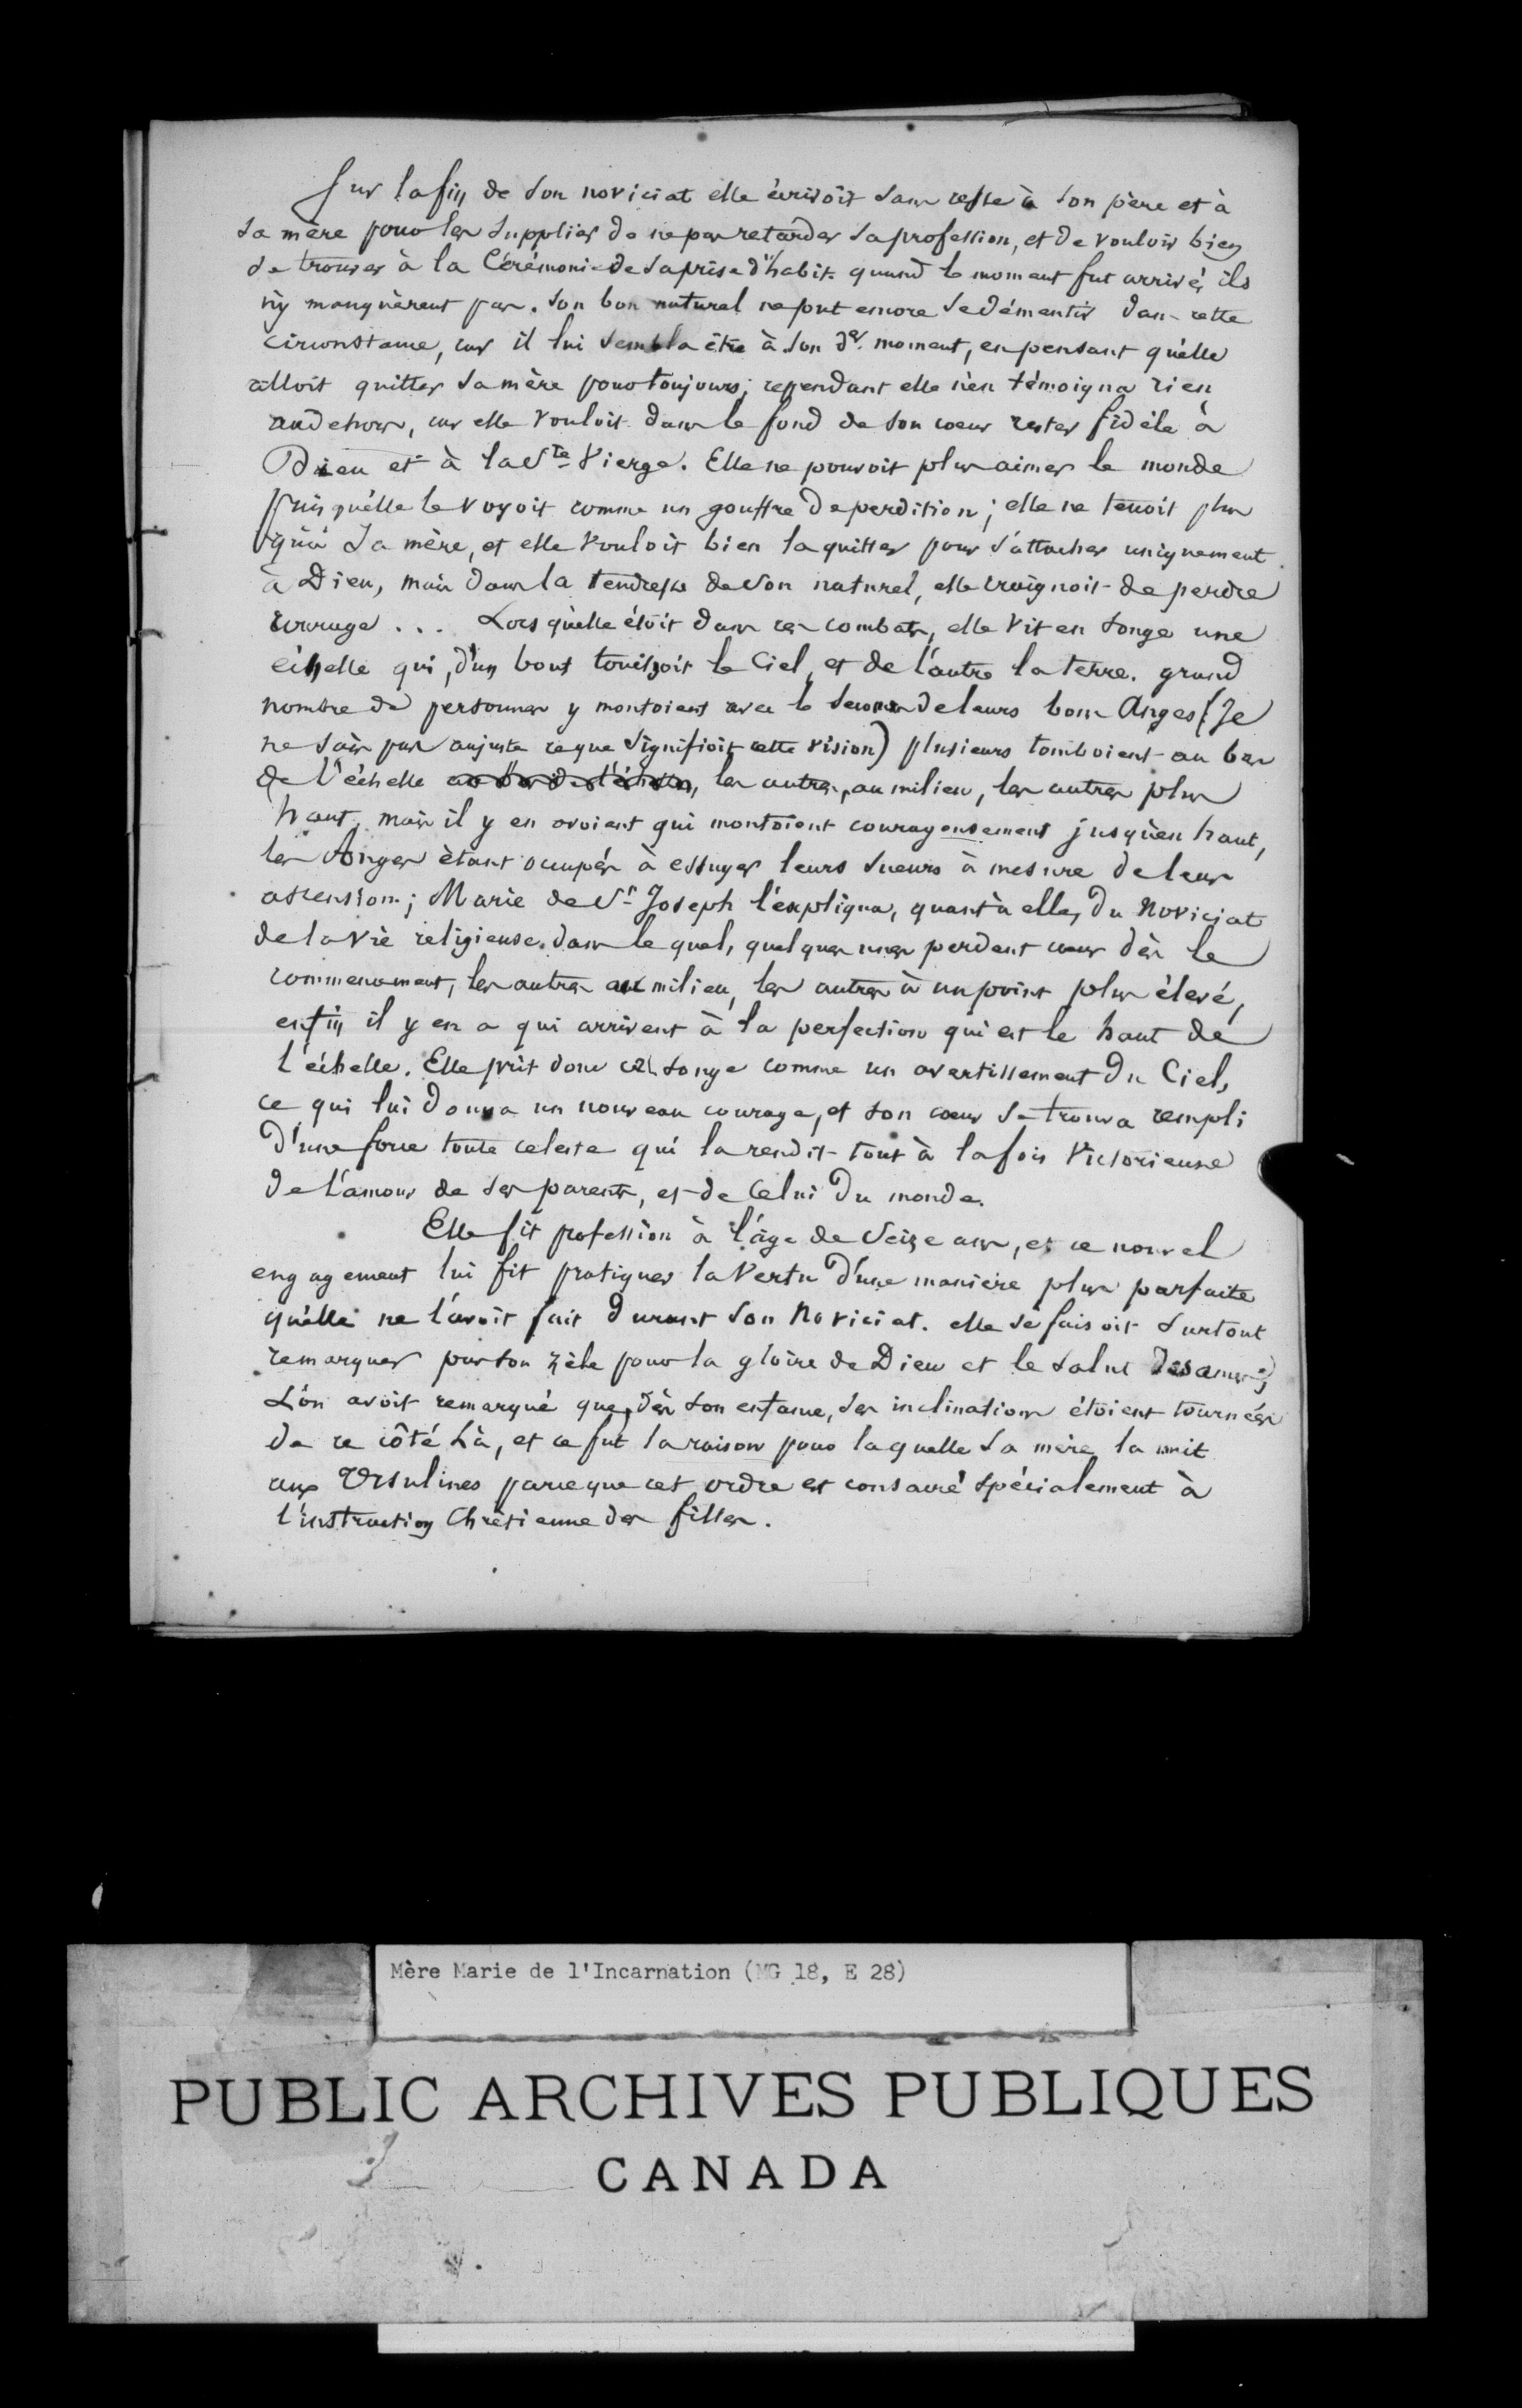 Sur la fin de son noviciat elle écrivoit sans cesse à son père et à
sa mère pour les supplier de ne pas retarder sa profession, et de vouloir bien
se trouver à la Cérémonie de sa prise d'habit. quand le moment fut arrivé, ils
n'y manquèrent pas. son bon naturel ne put encore se démentir dans cette
circonstance, car il lui sembla être à son der. moment, en pensant qu'elle
alloit quitter sa mère pour toujours; cependant elle n'en témoigna rien
au dehors, car elle vouloit dans le fond de son coeur rester fidèle à
Dieu et à la Ste Vierge. Elle ne pouvoit plus aimer le monde
puis qu'elle le voyoit comme un gouffre de perdition; elle ne tenoit plus
qu'à sa mère, et elle vouloit bien la quitter pour s'attacher uniquement
à Dieu, mais dans la tendresse de son naturel, elle craignoit de perdre
courage ... Lors qu'elle étoit dans ces combats, elle vit en songe une
échelle qui, d'un bout touchoit le Ciel, et de l'autre la terre. grand
nombre de personnes y montoient avec le secours de leurs bons Anges (Je
ne sais pas au juste ce que signifioit cette vision) plusieurs tomboient au bas
de l'échelle au bas de l'échelle, les autres, au milieu, les autres plus
haut, mais il y en avoient qui montoient courageusement jusqu'en haut,
les Anges étant ocupés à essuyer leurs sueurs à mesure de leur
ascension; Marie de St Joseph l'expliqua, quant à elle, du Noviciat
de la vie religieuse. dans le quel, quelques unes perdent coeur dès le
commencement, les autres au milieu, les autres à un point plus élevé,
enfin il y en a qui arrivent à la perfection qui est le haut de
l'échelle. Elle prit donc ce songe comme un avertissement du Ciel,
ce qui lui donna un nouveau courage, et son coeur se trouva rempli
d'une force toute celeste qui la rendit tout à la fois Victorieuse
de l'amour de ses parents, et de Celui du monde.
Elle fit profession à l'âge de Seize ans, et ce nouvel
engagement lui fit pratiquer la Vertu d'une manière plus parfaite
qu'elle ne l'avoit fait durant son Noviciat. elle se faisoit surtout
remarquer par son zèle pour la gloire de Dieu et le salut des ames;
L'on avoit remarqué que, dès son enfance, ses inclinations étoient tournées
de ce côté là, et ce fut la raison pour laquelle sa mère la mit
aux Ursulines parceque cet ordre est consacré spécialement à
l'instruction Chrétienne des filles.
Mère Marie de l'Incarnation (MG 18, E 28)
PUBLIC ARCHIVES PUBLIQUES
CANADA